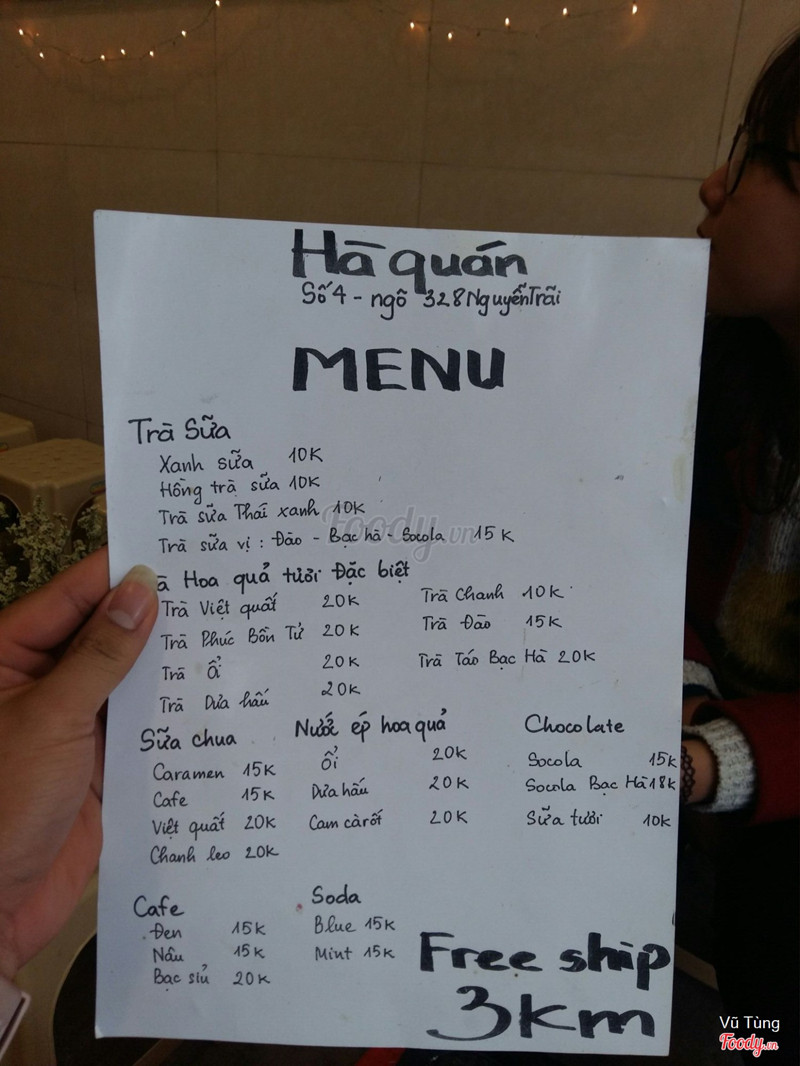 Hà quán
Số 4 - ngõ 328 Nguyễn Trãi
MENU
Trà Sữa
Xanh sữa 10K
Hồng trà sữa 10K
Trà sữa Thái xanh 10K
Trà sữa vị : Đào - Bạc hà - Socola 15K
Hoa quả tươi Đặc biệt
Trà Việt quất 20K
Trà Phúc Bồn Tử 20K
Trà Ổi 20K
Trà Dưa hấu 20K
Trà Chanh 10K
Trà Đào 15K
Trà Táo Bạc Hà 20K
Sữa chua
Caramen 15K
Cafe 15K
Việt quất 20K
Chanh leo 20K
Nước ép hoa quả
Ổi 20K
Dưa hấu 20K
Cam cà rốt 20K
Chocolate
Socola 15K
Socola Bạc Hà 18K
Sữa tươi 10K
Cafe
Đen 15K
Nâu 15K
Bạc sỉu 20K
Soda
Blue 15K
Mint 15K
Free ship
3km
Foody.vn
Vũ Tùng
Foody.vn